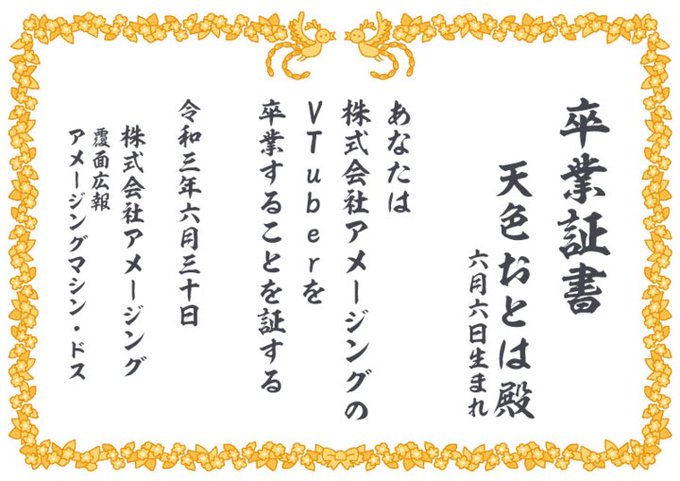 卒業証書
天色おとは殿
六月六日生まれ
あなたは
株式会社アメージングの
VTuberを
卒業することを証する
令和三年六月三十日
株式会社アメージング
覆面広報
アメージングマシン・ドス